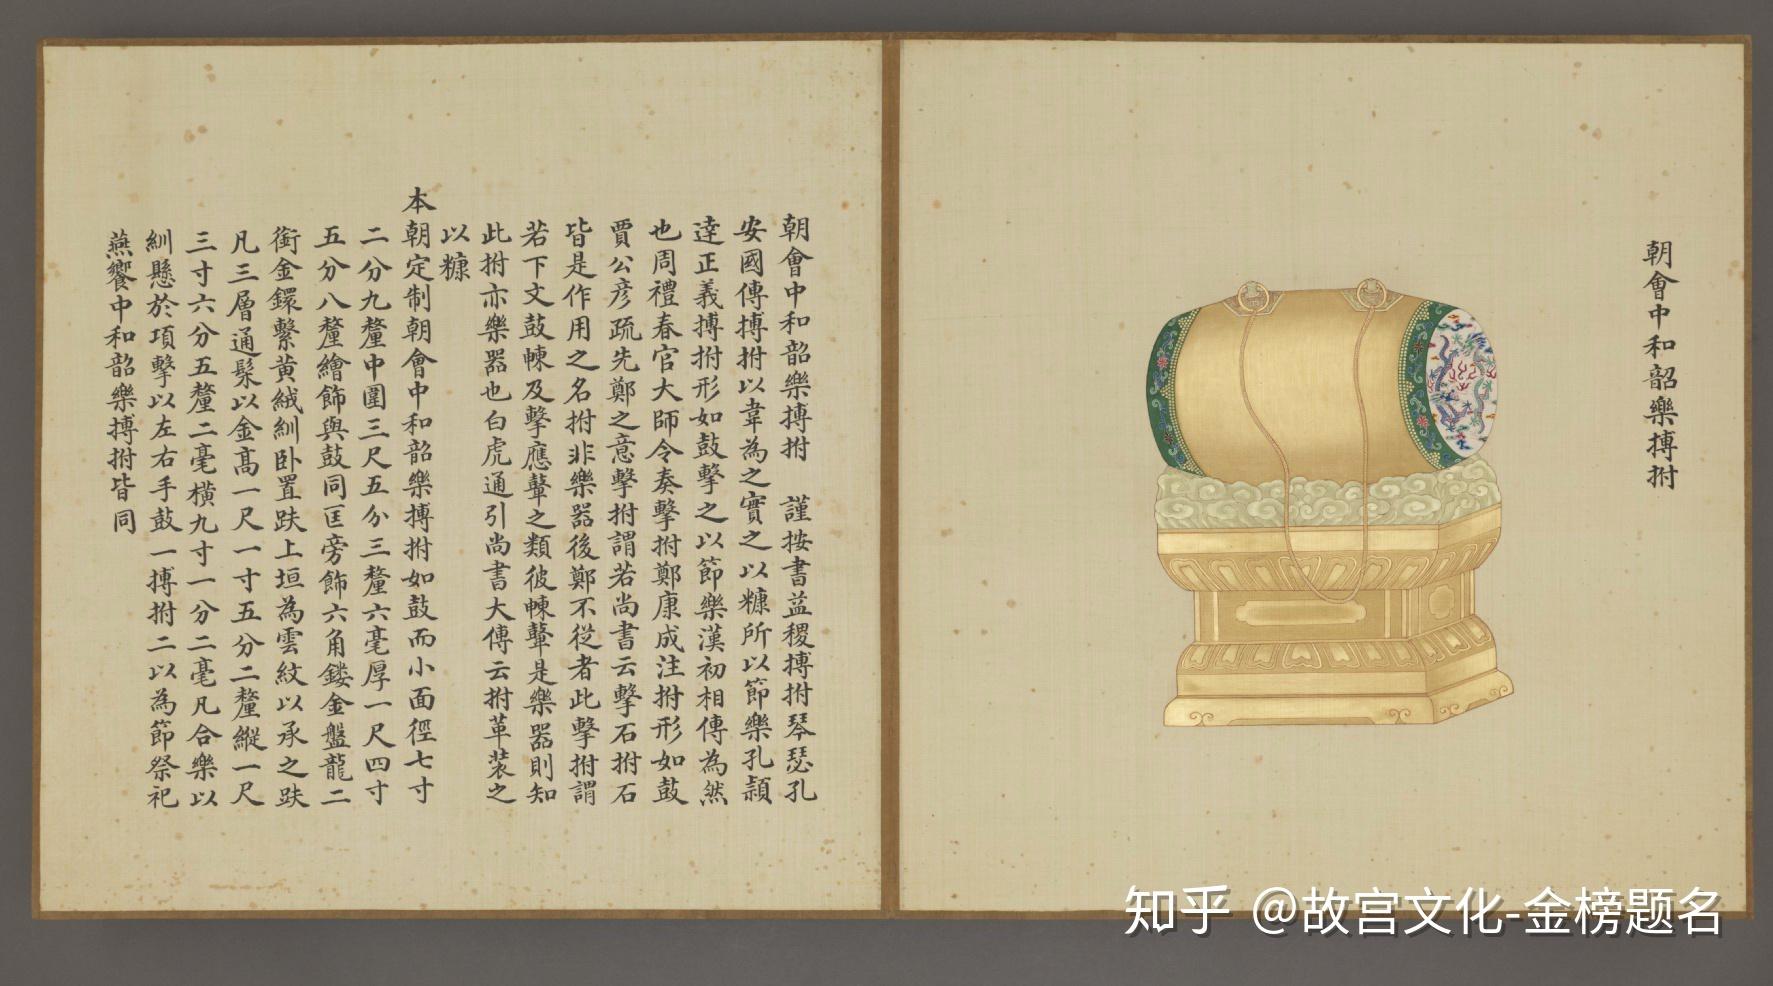 朝會中和韶樂搏拊
朝會中和韶樂搏拊　謹按書益稷搏拊琴瑟孔
安國傳搏拊以韋為之實之以糠所以節樂孔穎
達正義搏拊形如鼓擊之以節樂漢初相傳為然
也周禮春官大師令奏擊拊鄭康成注拊形如鼓
賈公彥疏先鄭之意擊拊謂若尚書云擊石拊石
皆是作用之名拊非樂器後鄭不從者此擊拊謂
若下文鼓朄及擊應鼙之類彼朄鼙是樂器則知
此拊亦樂器也白虎通引尚書大傳云拊革裝之
以糠
本朝定制朝會中和韶樂搏拊如鼓而小面徑七寸
二分九釐中圍三尺五分三釐六毫厚一尺四寸
五分八釐繪飾與鼓同匡旁飾六角鏤金盤龍二
銜金鐶繫黃絨紃臥置趺上垣為雲紋以承之趺
凡三層通髹以金高一尺一寸五分二釐縱一尺
三寸六分五釐二毫橫九寸一分二毫凡合樂以
紃懸於項擊以左右手鼓一搏拊二以為節祭祀
燕饗中和韶樂搏拊皆同
知乎 @故宫文化-金榜题名